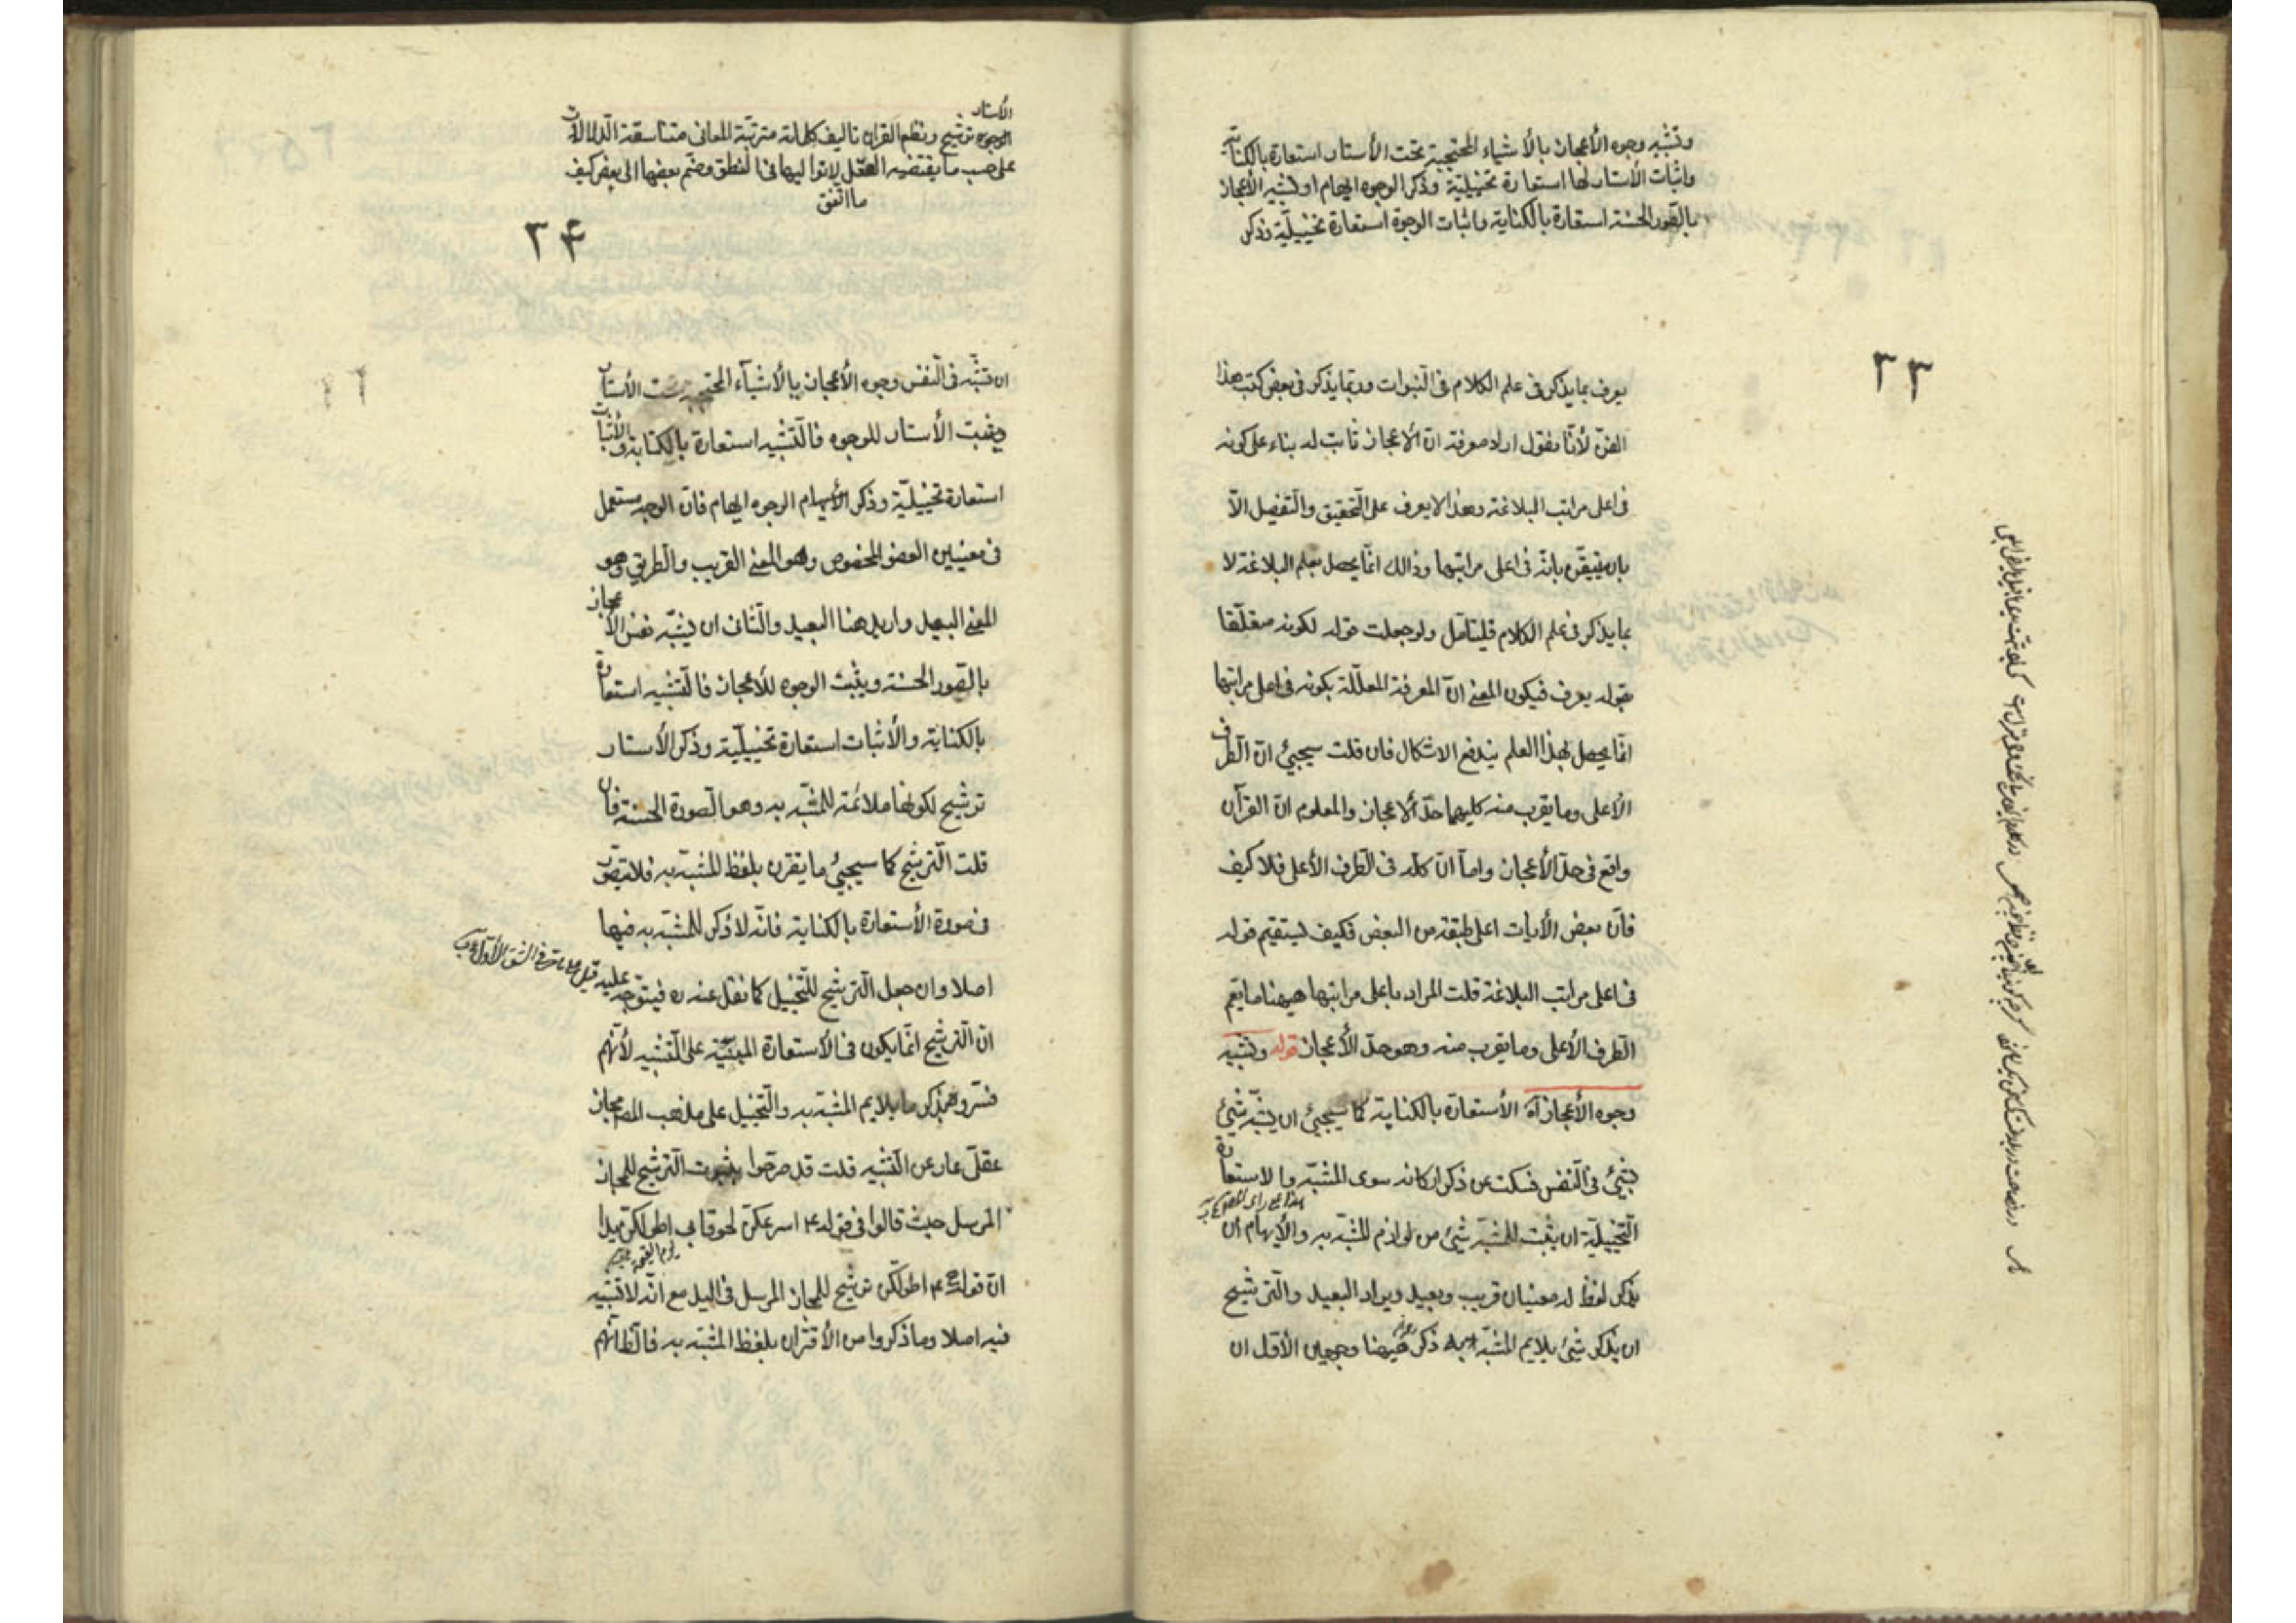 وتشبيه وجوه الأعجاز بالأشياء المحتجبة تحت الأستار استعارة بالكناية
واثبات الأستار لها استعارة تخييلية وذكر الوجوه ايهام او تشبيه الأعجاز
بالصور الحسنة استعارة بالكناية واثبات الوجوه استعارة تخييلية وذكر
٢٣
يعرف بما يذكر فى علم الكلام فى النبوات وربما يذكر فى بعض كتب هذا
الفن لأنّا نقول اراد معرفة انّ الأعجاز ثابت له بناء على كونه
فى اعلى مراتب البلاغة وهذا لا يعرف على التحقيق والتفصيل الاّ
بان يتيقّن بانّه فى اعلى مراتبها وذالك انّما يحصل بعلم البلاغة لا
بما يذكر فى علم الكلام فليتامل ولو جعلت قوله لكونه متعلّقا
بقوله يعرف فيكون المعنى انّ المعرفة المعلّلة بكونه فى اعلى مراتبها
انّما يحصل بهذا العلم يندفع الاشكال فان قلت سيجيئ انّ الطرف
الأعلى وما يقرب منه كليهما حدّ ألاعجاز والمعلوم انّ القرآن
واقع فى حدّ الأعجاز وامآ انّ كلّه فى الطرف الأعلى فلا كيف
فانّ بعض الأيات اعلى طبقة من البعض فكيف يستقيم قوله
فى اعلى مراتب البلاغة قلت المراد باعلى مراتبها هيهنا ما يعم
الطرف الأعلى وما يقرب منه وهو حدّ الأعجاز قوله وتشبيه
وجوه الأعجاز آه الأستعارة بالكناية كما سيجيئ ان يشبّه شيئ
بشيئ فى النفس فسكت عن ذكر اركانه سوى المشبّه والاستعارة
هذا على راى المصـ
التخييلية ان يثبت للمشبّه شيئ من لوازم المشبّه به والأيهام ان
يذكر لفظ له معنيان قريب وبعيد ويراد البعيد والترشيح
ان يذكر شيئ يلايم المشبّه به ذكر هيهنا وجهين الأوّل ان
الأستار
الوجوه ترشيح ونظم القران تاليف كلماته مترتّبة المعانى متناسقة الدلالات
على حسب ما يقتضيه العقل لا تواليها فى النطق وضم بعضها الى بعض كيف
ما اتّفق
٢۴
ان تشبّه فى النفس وجوه الأعجاز بالأشيآء المحتجبة تحت الأستار
ويثبت الأستار للوجوه فالتشبيه استعارة بالكناية والأثبات
استعارة تخييليّة وذكر الوجوه ايهام فانّ الوجه مستعمل
فى معنيين العضو المخصوص وهو المعنى القريب والطريق وهو
المعنى البعيد واريد هنا البعيد والثانى ان يشبّه نفس الأعجاز
بالصور الحسنة ويثبت الوجوه للأعجاز فالتشبيه استعارة
بالكناية والأثبات استعارة تخييليّة وذكر الأستار
ترشيح لكونها ملائمة للمشبّه به وهو الصورة الحسنة فان
قلت الترشيح كما سيجيئ ما يقرن بلفظ المشبّه به فلا يتصوّر
فى صورة الأستعارة بالكناية فانّه لا ذكر للمشبّه به فيها
اصلا وان جعل الترشيح للتخييل كما نقل عنه ره فيتوجّه عليه قبل ما مرّ فى الشق الأوّل
انّ الترشيح انّما يكون فى الأستعارة المبنيّة على التشبيه لأنّهم
فسّروه بذكر ما يلايم المشبّه به والتخييل على مذهب المصـ مجاز
عقلىّ عار عن التشبيه قلت قد صرّحوا بثبوت الترشيح للمجاز
المرسل حيث قالوا فى قوله ۴ اسرعكنّ لحوقا بى اطولكنّ يدا
انّ قوله ۴ اطولكنّ ترشيح للمجاز المرسل فى اليد مع انّه لا تشبيه
فيه اصلا وما ذكروا من الأقتران بلفظ المشبّه به فالظاهم